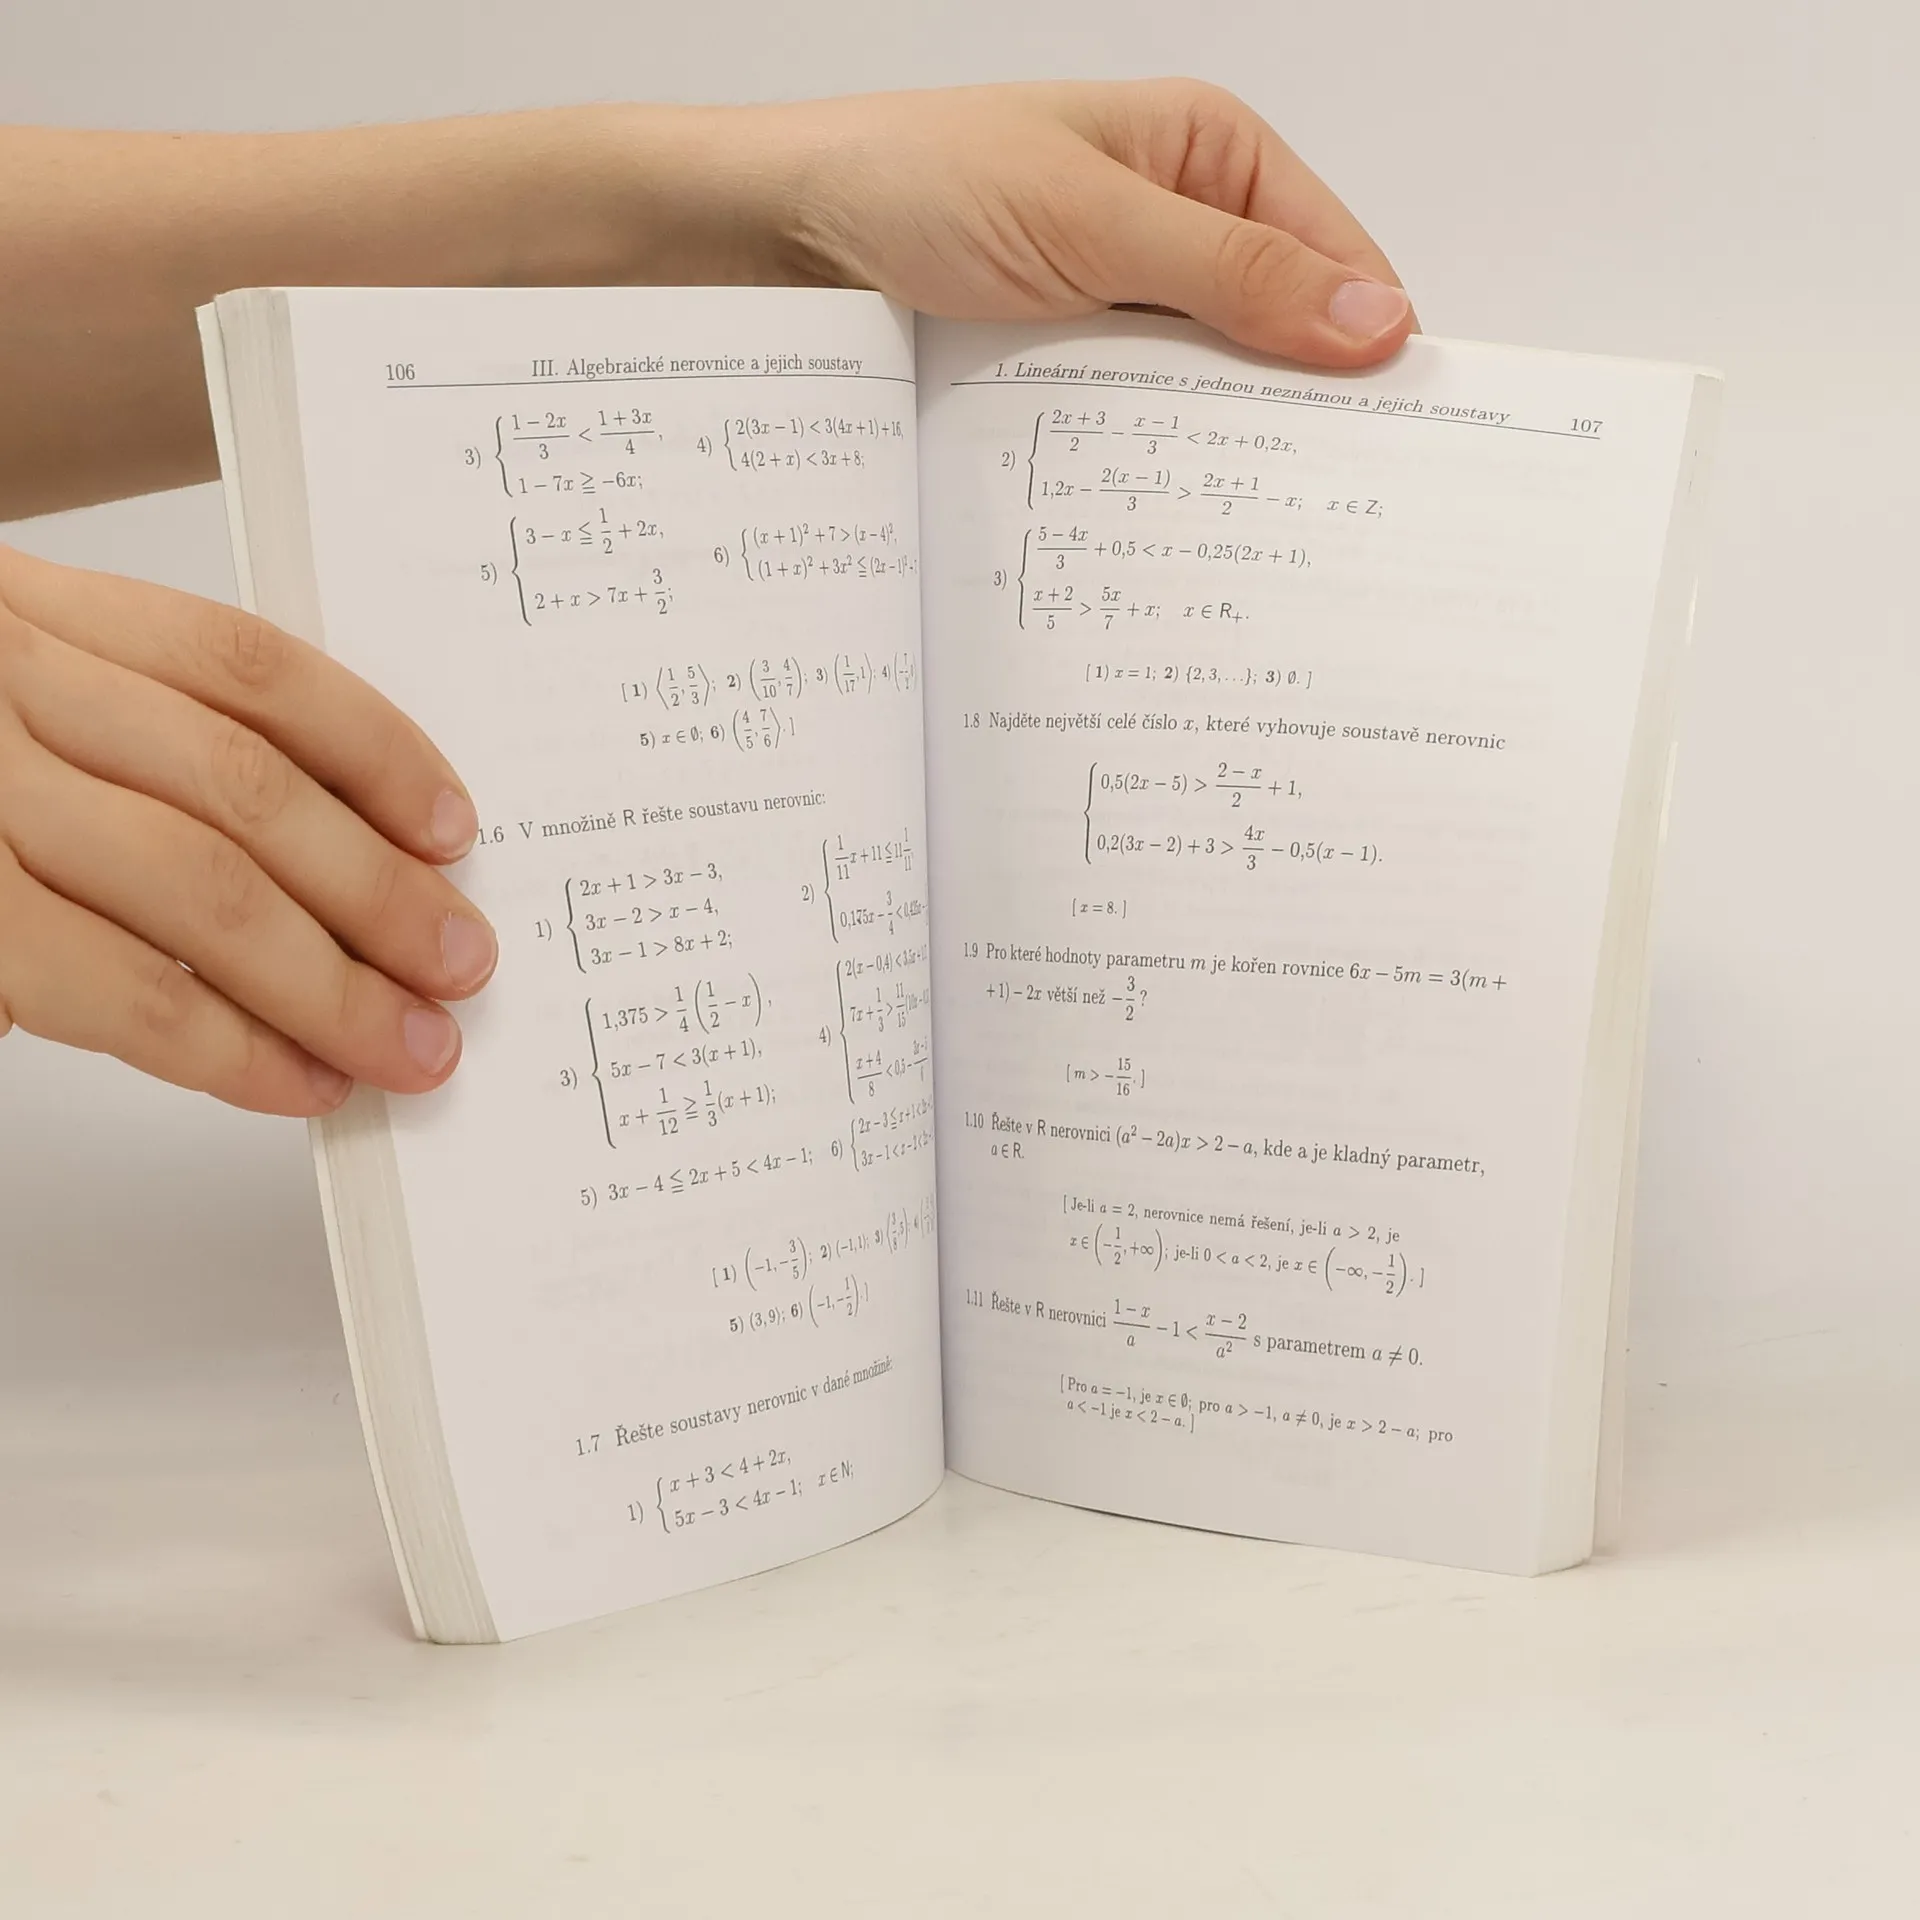 106 III. Algebraické nerovnice a jejich soustavy
3) { (1 − 2x)/3 < (1 + 3x)/4,
1 − 7x ≧ −6x;
4) { 2(3x − 1) < 3(4x + 1) + 16,
4(2 + x) < 3x + 8;
5) { 3 − x ≦ 1/2 + 2x,
2 + x > 7x + 3/2;
6) { (x + 1)² + 7 > (x − 4)²,
(1 + x)² + 3x² ≦ (2x − 1)² +
[ 1) ⟨1/2, 5/3⟩; 2) (3/10, 4/7); 3) (1/17, 1); 4)
5) x ∈ ∅; 6) (4/5, 7/6⟩. ]
1.6 V množině R řešte soustavu nerovnic:
1) { 2x + 1 > 3x − 3,
3x − 2 > x − 4,
3x − 1 > 8x + 2;
2) { 1/11 x + 11 ≦ 11 1/11
0,175x − 3/4 <
3) { 1,375 > 1/4 (1/2 − x),
5x − 7 < 3(x + 1),
x + 1/12 ≧ 1/3 (x + 1);
4) { 2(x − 0,4) <
7x + 1/3 > 11/15
(x + 4)/8 < 0,5 −
5) 3x − 4 ≦ 2x + 5 < 4x − 1;
6) { 2x − 3 ≦ x + 1 <
3x − 1 < x −
[ 1) (−1, −3/5); 2) (−1, 1); 3) (3/8, 5); 4)
5) (3, 9); 6) (−1, −1/2). ]
1.7 Řešte soustavy nerovnic v dané množině:
1) { x + 3 < 4 + 2x,
5x − 3 < 4x − 1; x ∈ N;
1. Lineární nerovnice s jednou neznámou a jejich soustavy 107
2) { (2x + 3)/2 − (x − 1)/3 < 2x + 0,2x,
1,2x − 2(x − 1)/3 > (2x + 1)/2 − x; x ∈ Z;
3) { (5 − 4x)/3 + 0,5 < x − 0,25(2x + 1),
(x + 2)/5 > 5x/7 + x; x ∈ R₊.
[ 1) x = 1; 2) {2, 3, ...}; 3) ∅. ]
1.8 Najděte největší celé číslo x, které vyhovuje soustavě nerovnic
{ 0,5(2x − 5) > (2 − x)/2 + 1,
0,2(3x − 2) + 3 > 4x/3 − 0,5(x − 1).
[ x = 8. ]
1.9 Pro které hodnoty parametru m je kořen rovnice 6x − 5m = 3(m +
+1) − 2x větší než −3/2?
[ m > −15/16. ]
1.10 Řešte v R nerovnici (a² − 2a)x > 2 − a, kde a je kladný parametr,
a ∈ R.
[ Je-li a = 2, nerovnice nemá řešení, je-li a > 2, je
x ∈ (−1/2, +∞); je-li 0 < a < 2, je x ∈ (−∞, −1/2). ]
1.11 Řešte v R nerovnici (1 − x)/a − 1 < (x − 2)/a² s parametrem a ≠ 0.
[ Pro a = −1, je x ∈ ∅; pro a > −1, a ≠ 0, je x > 2 − a; pro
a < −1 je x < 2 − a. ]